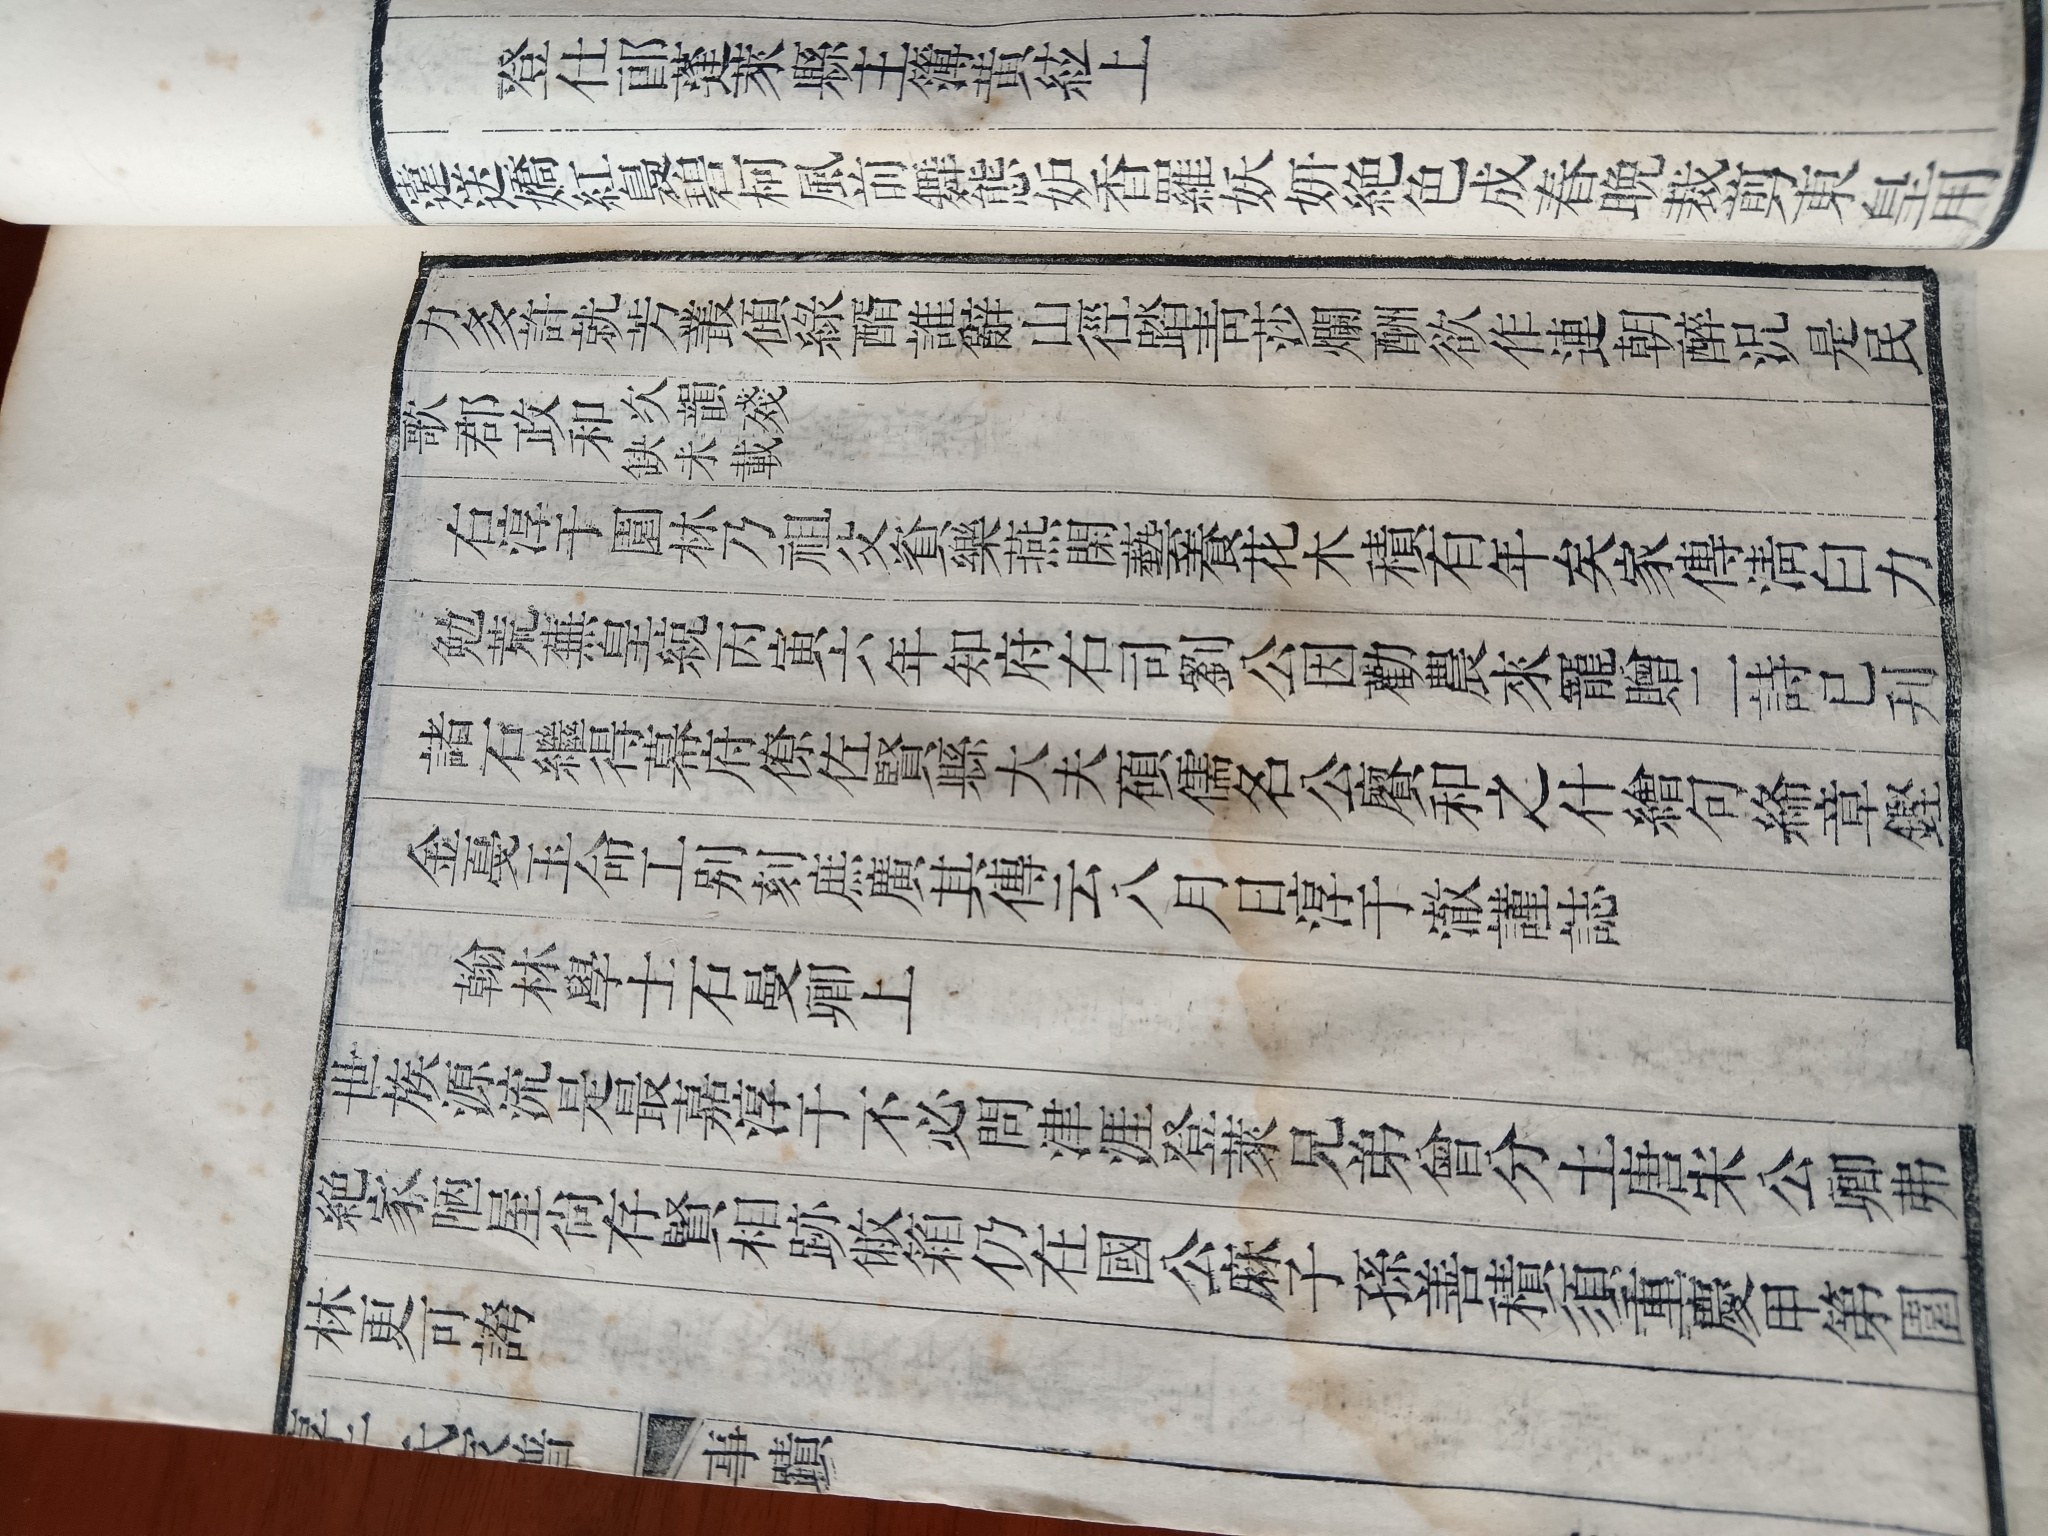 登仕郎蓬萊縣主簿黃紘上
嬌紅碧柯風前舞態如香羅妖妍絕色成春晚裁剪東皇用
力多許就芳叢傾綠醑誰辭山徑踏青莎爛酬欲作連朝醉況是民
歌郡政和次韻殘缺未載
右淳于園林乃祖父資樂燕閑藝養花木積有年矣家傳清白力
勉荒蕪皇統丙寅六年知府右司劉公因勸農來寵贈二詩已刋
諸石繼得幕府僚佐賢縣大夫碩儒名公賡和之什繪句絺章鏗
金戞玉命工別刻庶廣其傳云八月日淳于澈謹誌
翰林學士石曼卿上
世族源流是最嘉淳于不必問津涯登萊兄弟曾分土唐宋公卿弗
絕家陋屋尚存賢相跡敝箱仍在國公麻子孫善積須重慶甲第園
林更可誇
事蹟